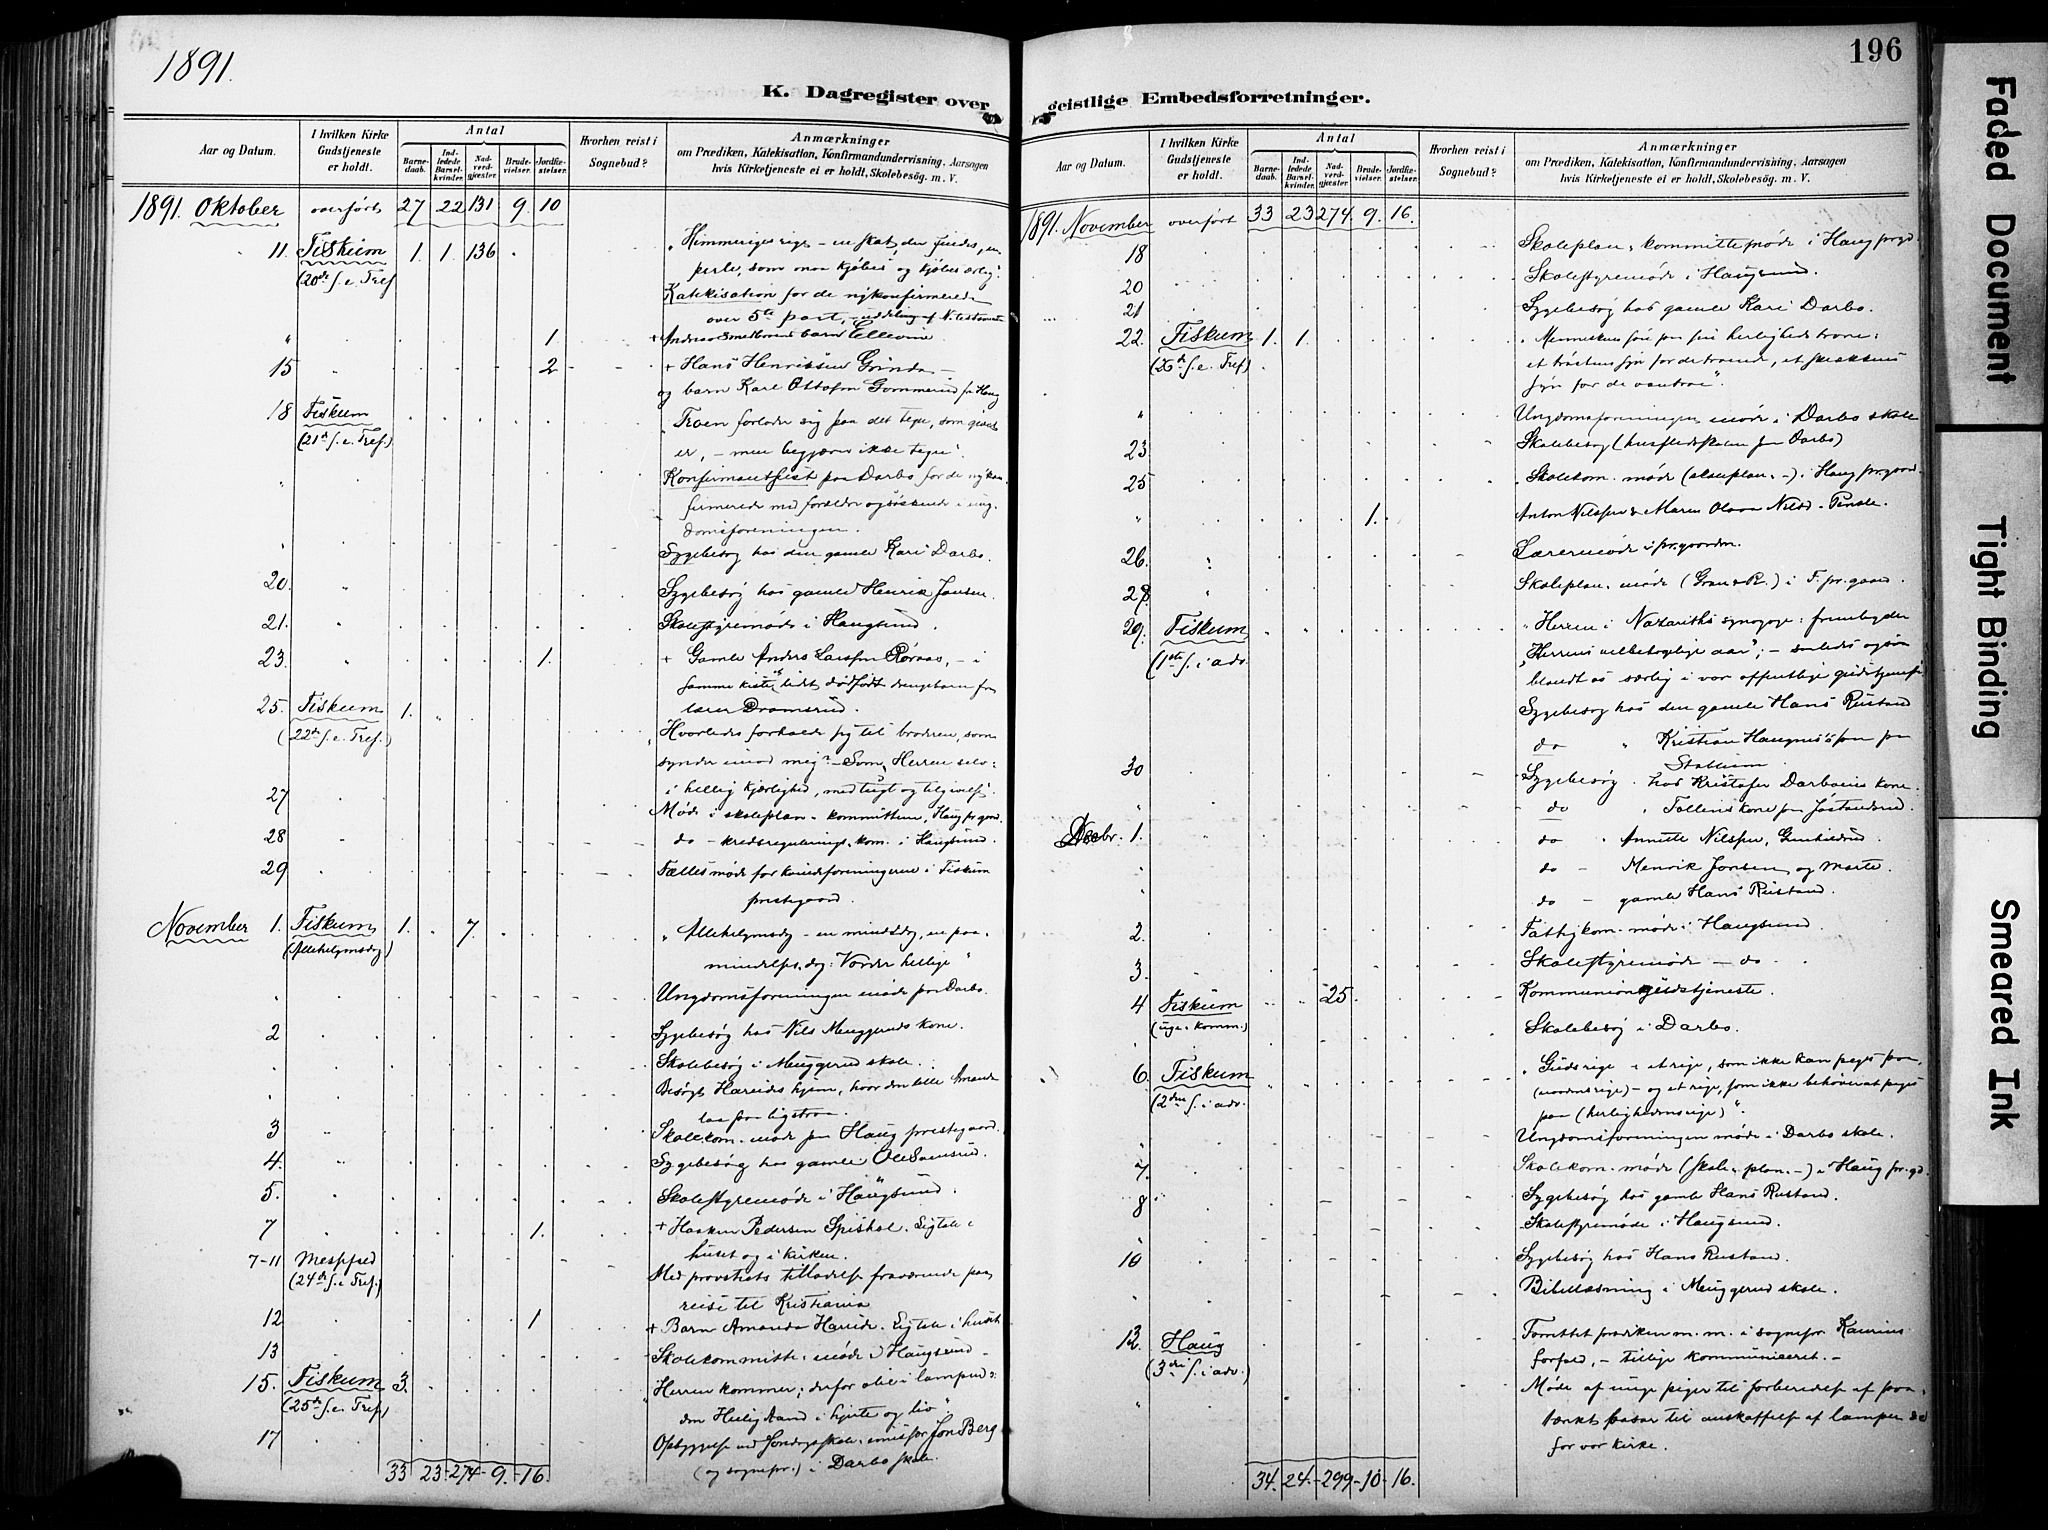 1891.
196
K. Dagregister over
geistlige Embedsforretninger.
Aar og Datum.
I hvilken Kirke Gudstjeneste er holdt.
Antal
Barnedaab.
Indledede Barselkvinder.
Nadverdgjæster.
Brudevielser.
Jordfæstelser.
Hvorhen reist i Sognebud?
Anmærkninger
om Prædiken, Katekisation, Konfirmandundervisning, Aarsagen
hvis Kirketjeneste ei er holdt, Skolebesøg. m. V.
1891. Oktober overført 27 22 131 9. 10
11. Fiskum 1. 1. 136 „Himmeriges rige – en skat, der findes, en
(20de s. e. Tref perle, som maa kjøbes og kjøbes
Katekisation for de nykonfirmerede
over 5te part, – uddeling af N. testamente
" 1 + barn Ellevine
15 " 2 + Hans Henriksen Grinda –
og barn Karl Ottosen Gommerud fr Haug
18 Fiskum „Troen forlader sig paa det tegn, som givet
(21de s. e. Tref.) er, – men begjærer ikke tegn".
" Konfirmantfest paa Darbo for de nykon
firmerede med forældre og søskende i ung
domsforeningen.
Sygebesøg hos den gamle Kari Darbo.
20. " Sygebesøg hos gamle Henrik Jonsen.
21. " Skolestyremøde i Haugsund.
23. " 1. + Gamle Anders Larssen Røraas, – i
samme kiste et lidet dødfødt drengebarn fr
25. Fiskum 1. " lærer Dramsrud.
(22de s. e. Tref.) „Hvorledes forholde sig til broderen, som
synder imod mig? – Som Herren selv:
27 i hellig kjærlighed, med tugt og tilgivelse.
Møde i skoleplan-kommitteen, Haug pr.gaard
28 do – kredsregulerings.kom. i Haugsund.
29 Fællesmøde for kvindeforeningerne i Fiskum
prestegaard.
November 1. Fiskum 1. 7. „Allehelgensdag – en mindedag, en paa-
(Allehelgensdag) mindelses.dag: Vorder hellige"
" Ungdomsforeningen møde paa Darbo.
2 Sygebesøg hos Nils Muggeruds kone.
Skolebesøg i Muggerud skole.
Besøgt Hareides hjem, hvor den lille Amanda
laa paa ligstraa.
3 Skolekom.møde paa Haug prestegaard.
4. Sygebesøg hos gamle Ole
5. Skolestyremøde i Haugsund.
7 1. + Haaken Pedersen Spishol. Ligtale i
huset og i kirken.
7-11 Messefred Med provstiets tilladelse fraværende paa
(24de s. e. Tref.) reise til Kristiania
12 1 + Barn Amanda Hareide. Ligtale i huset
13 Skolekommitte.møde i Haugsund –
15. Fiskum 3. "Herren kommer; derfor olie i lamperne:
(25de s. e. Tref.) den Hellig Aand i hjerte og liv".
17 Opbyggelse ved Søndagsskole-emissær Jon Berg
(og sognepr.) i Darbo skole.
33 23 - 274 - 9. - 16.
Aar og Datum.
I hvilken Kirke Gudstjeneste er holdt.
Antal
Barnedaab.
Indledede Barselkvinder.
Nadverdgjæster.
Brudevielser.
Jordfæstelser.
Hvorhen reist i Sognebud?
Anmærkninger
om Prædiken, Katekisation, Konfirmandundervisning, Aarsagen
hvis Kirketjeneste ei er holdt, Skolebesøg. m. V.
1891. November overført 33 23 274. 9. 16.
18 Skoleplan-kommittemøde i Haug pr.gd
20 Skolestyremøde i Haugsund.
21 Sygebesøg hos gamle Kari Darbo.
22. Fiskum 1. 1. „Menneskens søn paa sin herligheds trone:
(26de s. e. Tref) et trøstens syn for de troende, et skrækkens
syn for de vantro".
" Ungdomsforeningen møde i Darbo skole
23 Skolebesøg (husflidsskolen paa Darbo)
25 Skolekom. møde (skoleplan. –) i Haug pr.gaard
" 1. Anton Nilssen & Maren Olava Nilsd.
26. " Lærermøde i pr.gaarden.
28 " Skoleplan. møde ( ) i F. pr.gaard.
29. Fiskum „Herren i Nazareths synagoge: frembyder
(1ste s. i adv. „Herrens velbehagelige aar"; – saaledes ogsaa
blandt os særlig i vor offentlige gudstjeneste
Sygebesøg hos den gamle Hans Rustand
do " Kristian Haugnes's søn paa
30 Stablum.
Sygebesøg hos Kristofer Darboeies kone.
do " kone paa Jøstandrud.
Decbr. 1. do " Annette Nilssen,
do – Henrik Jonsen og Marte.
do – gamle Hans Rustand.
2. Fattigkom. møde i Haugsund.
3. Skolestyremøde – do
4 Fiskum 25. Kommuniongudstjeneste.
(uge-komm.) Skolebesøg i Darbo.
6. Fiskum „Guds rige – et rige, som ikke kan peges paa,
(2den s. i adv. (naadens rige) – og et rige, som ikke behøver at peges
paa (herlighedens rige)".
Ungdomsforeningen møde i Darbo skole.
7. Skolekom. møde (skole-plan. –) i Haug pr.gd.
8 Sygebesøg hos gamle Hans Rustand.
Skolestyremøde i Haugsund.
10 Sygebesøg hos Hans Rustand.
" Bibellæsning i Muggerud skole.
13. Haug Forrettet prædiken m. m. i sognepr. Kaurins
(3die s. i adv.) forfald, – tillige kommuniceret. –
" Møde af unge piger til forberedelse af paa-
tænkt basar til anskaffelse af lamper &c
for vor kirke.
34. 24. - 299 - 10 - 16.
Faded Document
Tight Binding
Smeared Ink